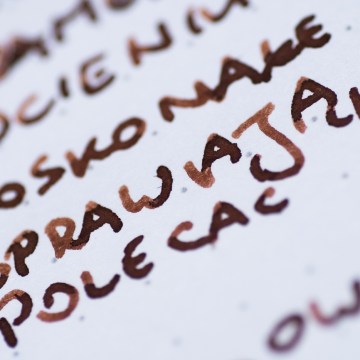 OCIENI
OSKONAŁE
SPRAWIAJA
POLECAC
OW